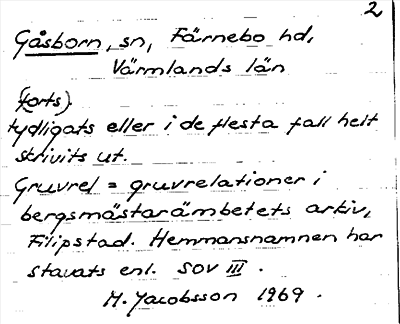 2
Gåsborn, sn, Färnebo hd,
Värmlands län
(forts).
tydligats eller i de flesta fall helt
skrivits ut.
Gruvrel = gruvrelationer i
bergsmästarämbetets arkiv,
Filipstad. Hemmansnamnen har
stavats enl. SOV III.
M. Jacobsson 1969.